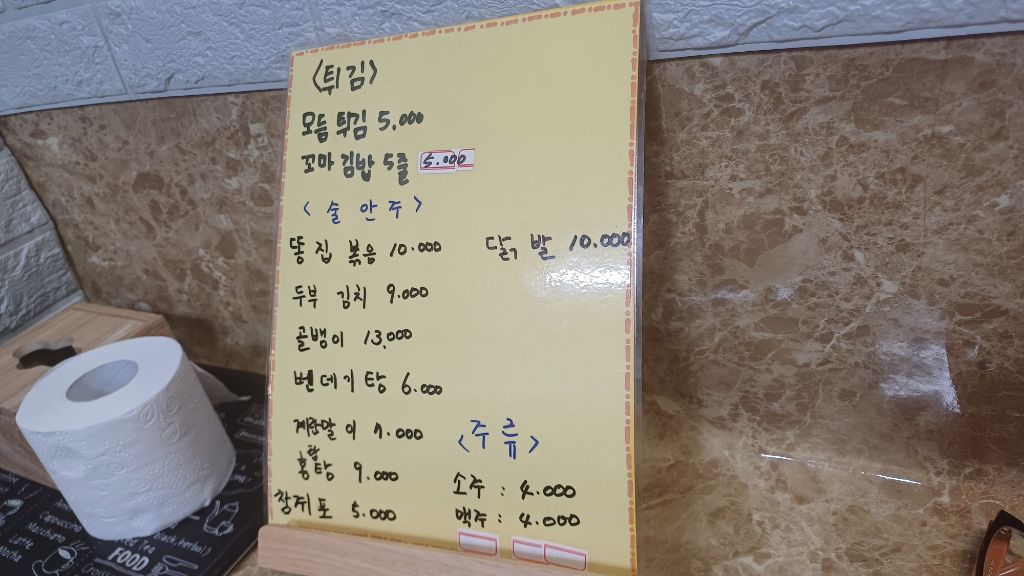 <튀김>
모듬 튀김 5,000
꼬마 김밥 5줄 5.000
<술 안주>
똥집 볶음 10.000
닭발 10.000
두부 김치 9.000
골뱅이 13,000
뻔데기탕 6.000
계란말이 7.000
홍합탕 9.000
<주류>
소주 : 4.000
맥주 : 4.000
5.000
Cappuccino
Macchiato
Latte
Mocha
FOOD